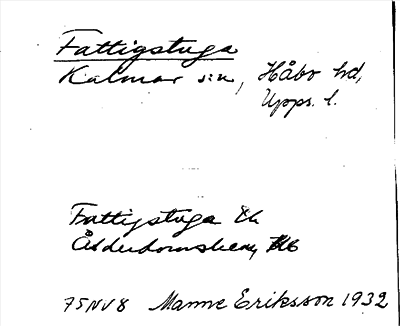 Fattigstuga
Kalmar s:n, Håbo hd,
Upps. l.
Fattigstuga
Ålderdomshem
75NV8 Manne Eriksson 1932